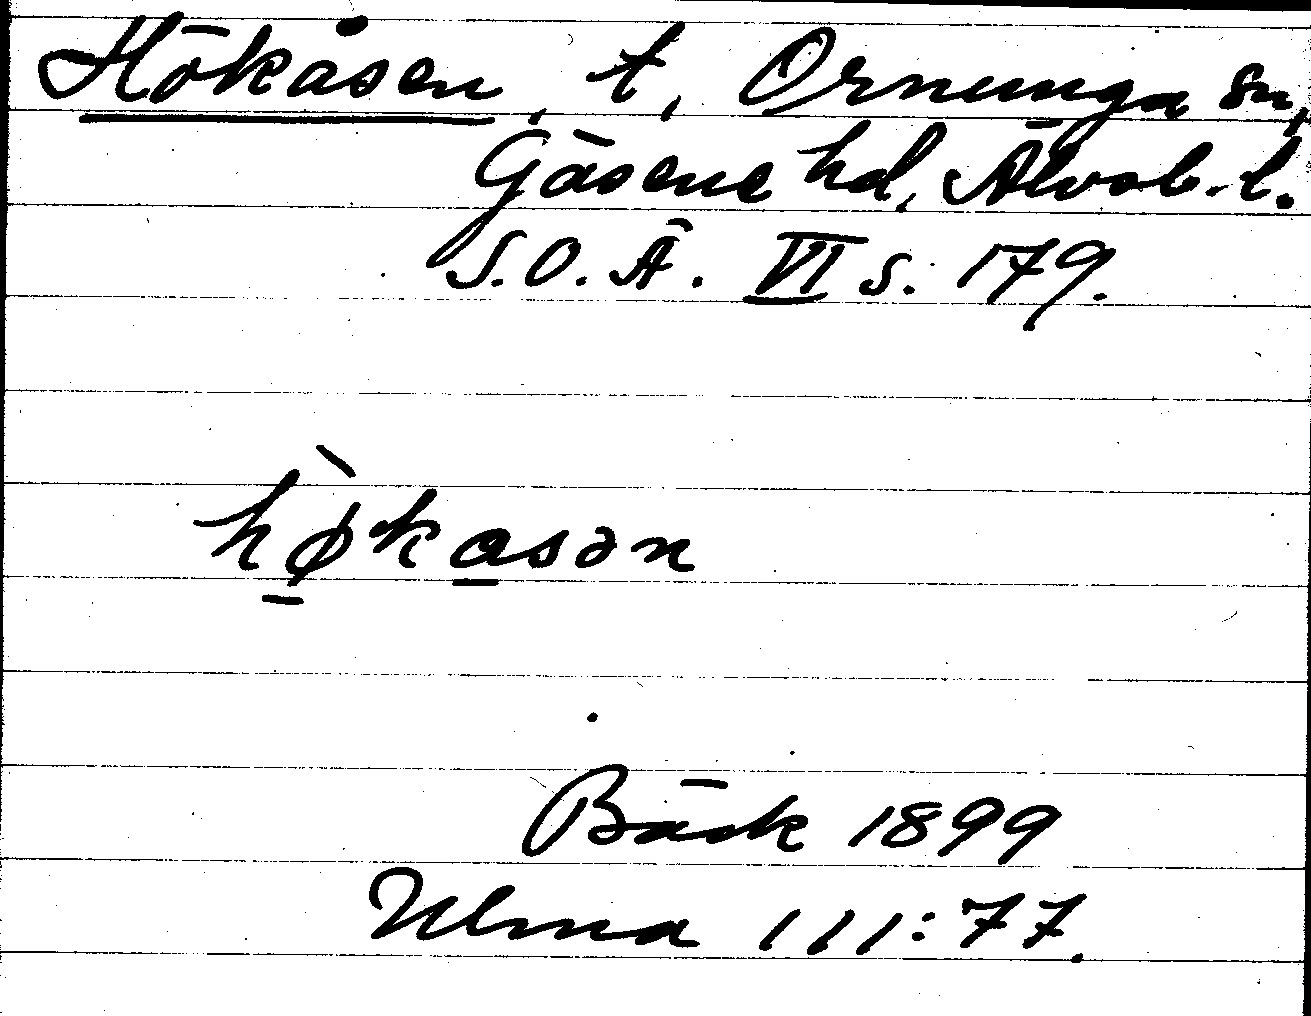 Hökåsen, t, Ornunga sn,
Gäsene hd, Älvsb. l.
S.O.Ä. VI s. 179.
hø̱̀ka̱sən
Bäck 1899
Ulma 111:77.